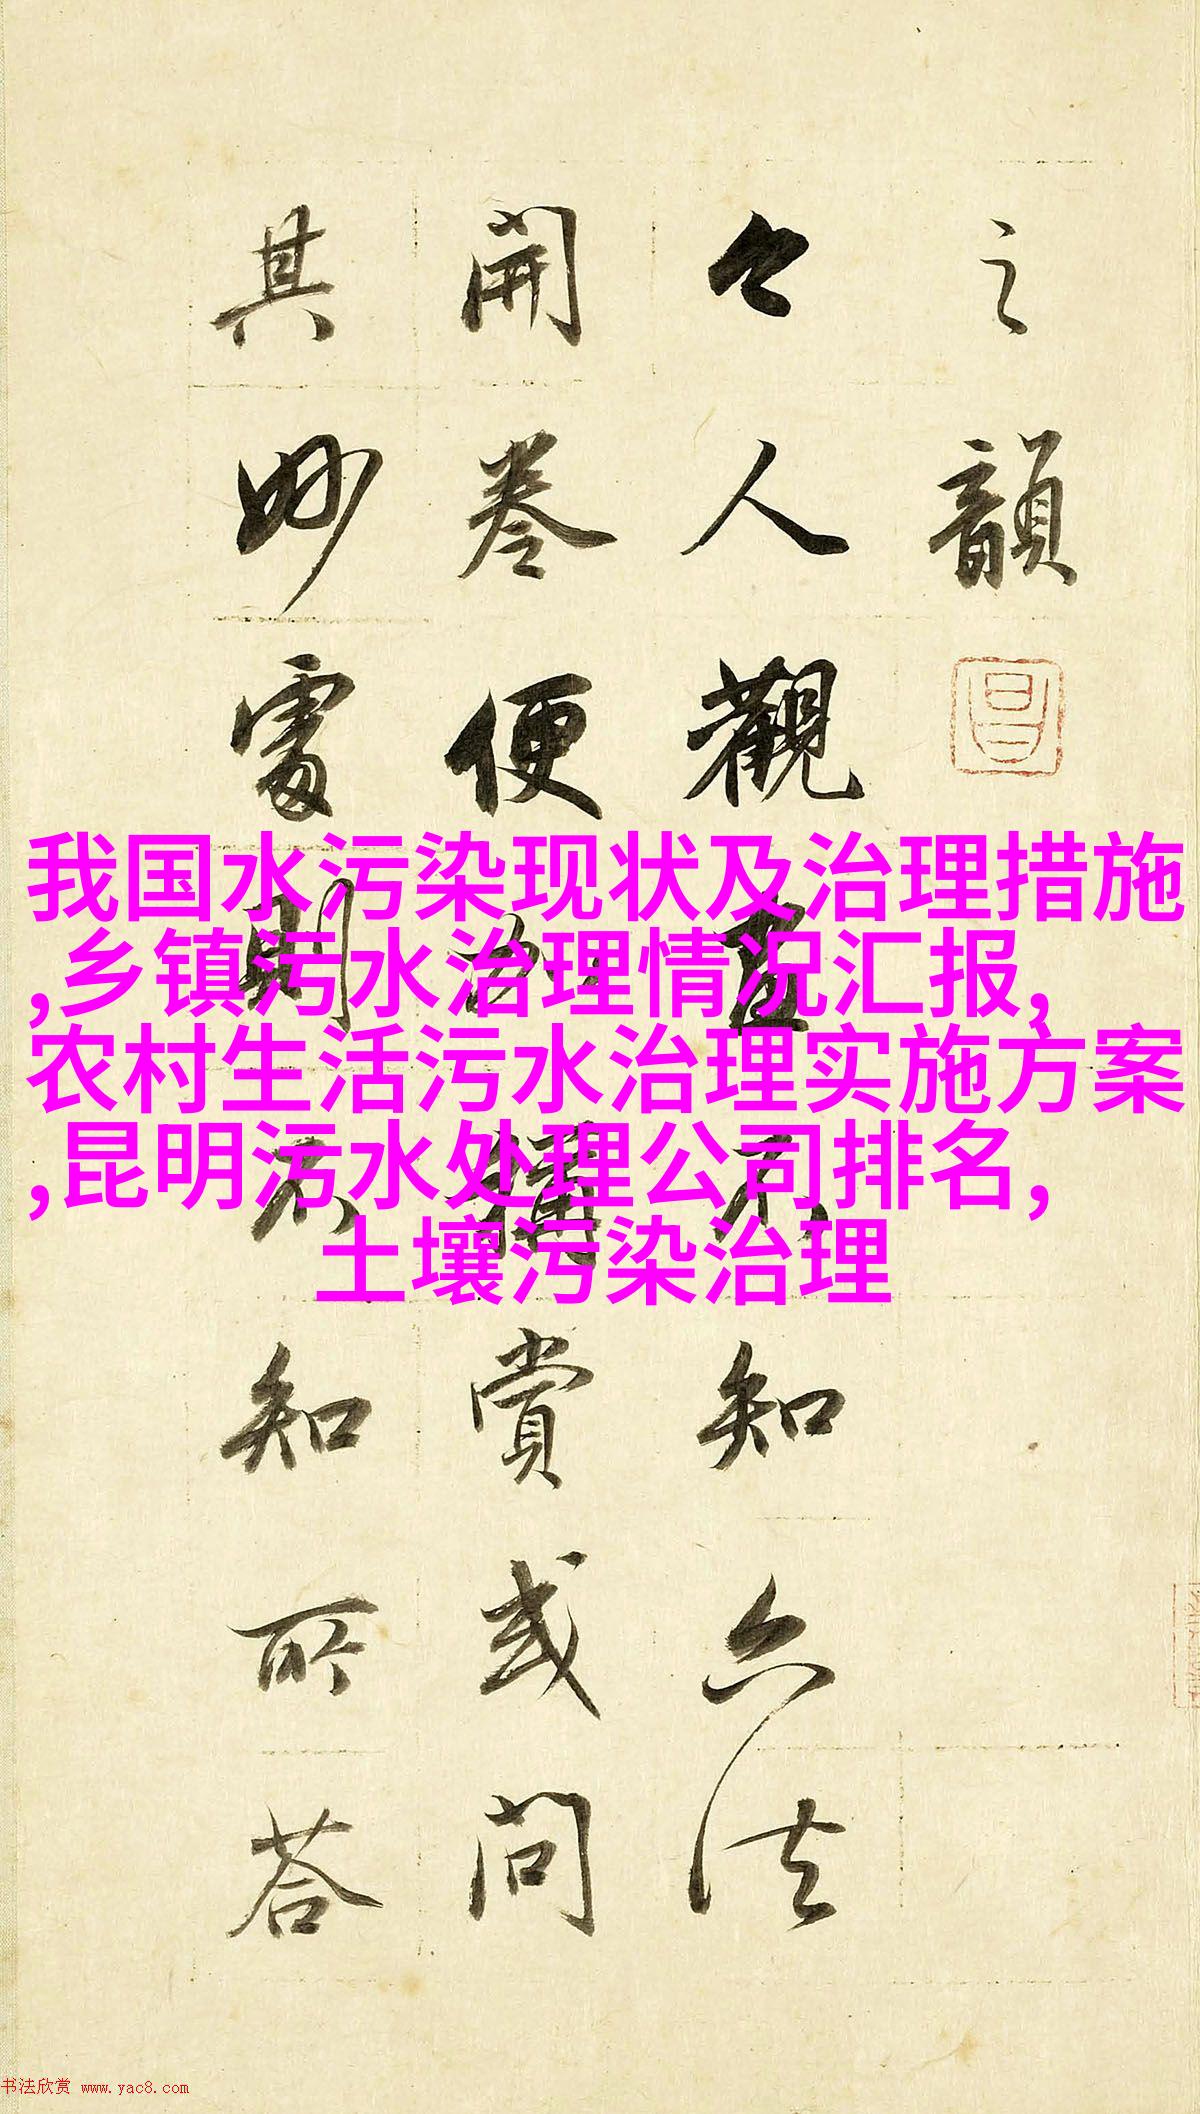 之韻
今人觀不知六法
開卷便加稱賞或問
其妙處則不知所荅
我国水污染现状及治理措施
,乡镇污水治理情况汇报,
农村生活污水治理实施方案
,昆明污水处理公司排名,
土壤污染治理
书法欣赏 www.yac8.com